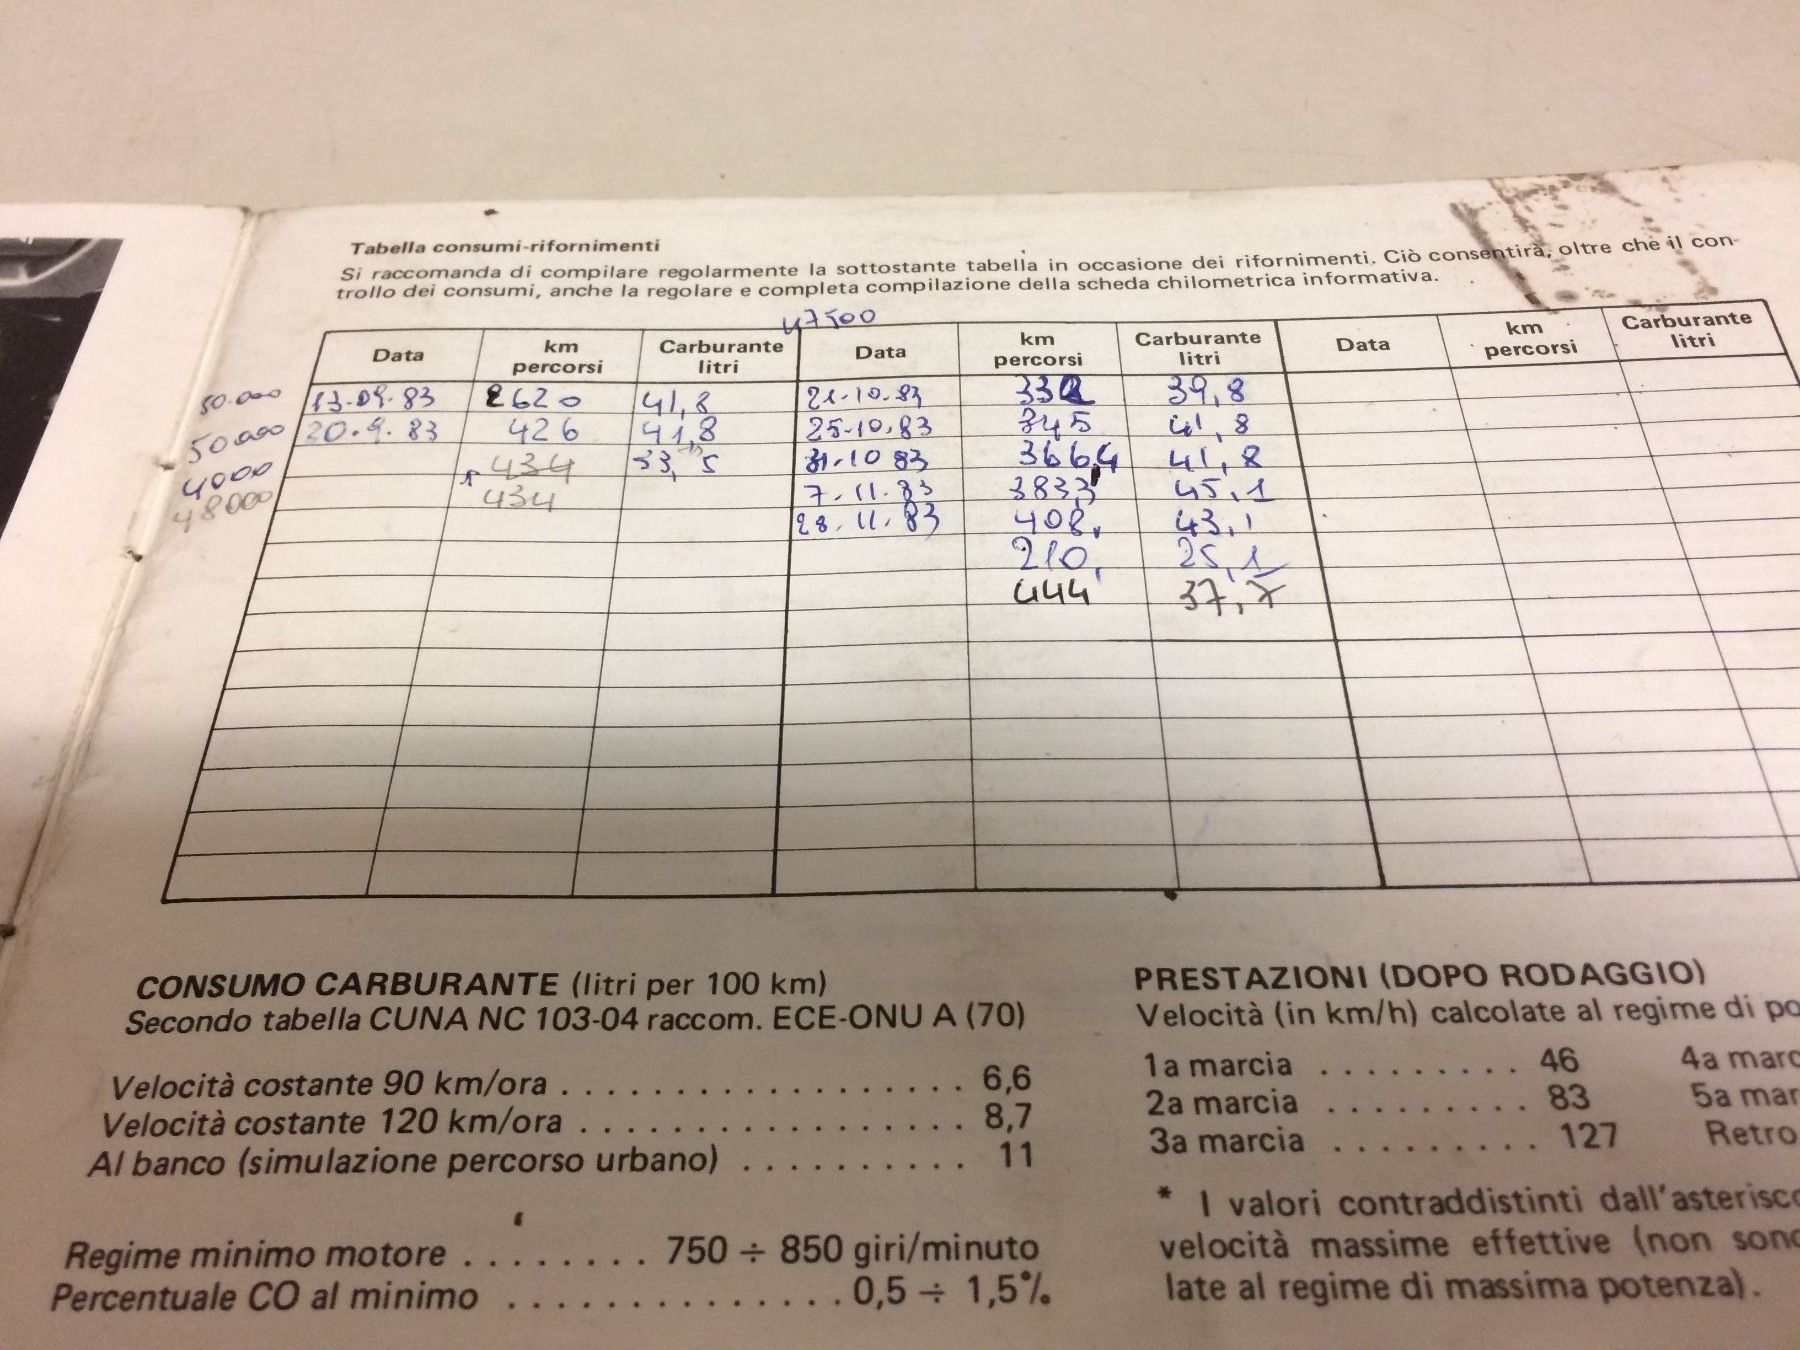 Tabella consumi-rifornimenti
Si raccomanda di compilare regolarmente la sottostante tabella in occasione dei rifornimenti. Ciò consentirà, oltre che il con-
trollo dei consumi, anche la regolare e completa compilazione della scheda chilometrica informativa.
47500
Data km percorsi Carburante litri Data km percorsi Carburante litri Data km percorsi Carburante litri
50.000 13.09.83 620 41,8 21.10.83 332 39,8
50000 20.9.83 426 41,8 25.10.83 345 41,8
4000 434 33,5 31.10 83 366,4 41,8
48000 434 7.11.83 383,3 45,1
28.11.83 408, 43,1
210, 25,1
444 37,7
CONSUMO CARBURANTE (litri per 100 km)
Secondo tabella CUNA NC 103-04 raccom. ECE-ONU A (70)
Velocità costante 90 km/ora . . . . . . . . . . . . . . . . . . 6,6
Velocità costante 120 km/ora . . . . . . . . . . . . . . . . . 8,7
Al banco (simulazione percorso urbano) . . . . . . . . . . 11
Regime minimo motore . . . . . . . . 750 ÷ 850 giri/minuto
Percentuale CO al minimo . . . . . . . . . . . . . . . 0,5 ÷ 1,5%
PRESTAZIONI (DOPO RODAGGIO)
Velocità (in km/h) calcolate al regime di po
1a marcia . . . . . . . . . 46 4a marc
2a marcia . . . . . . . . . 83 5a mar
3a marcia . . . . . . . . . 127 Retro
* I valori contraddistinti dall'asterisco
velocità massime effettive (non sono
late al regime di massima potenza).